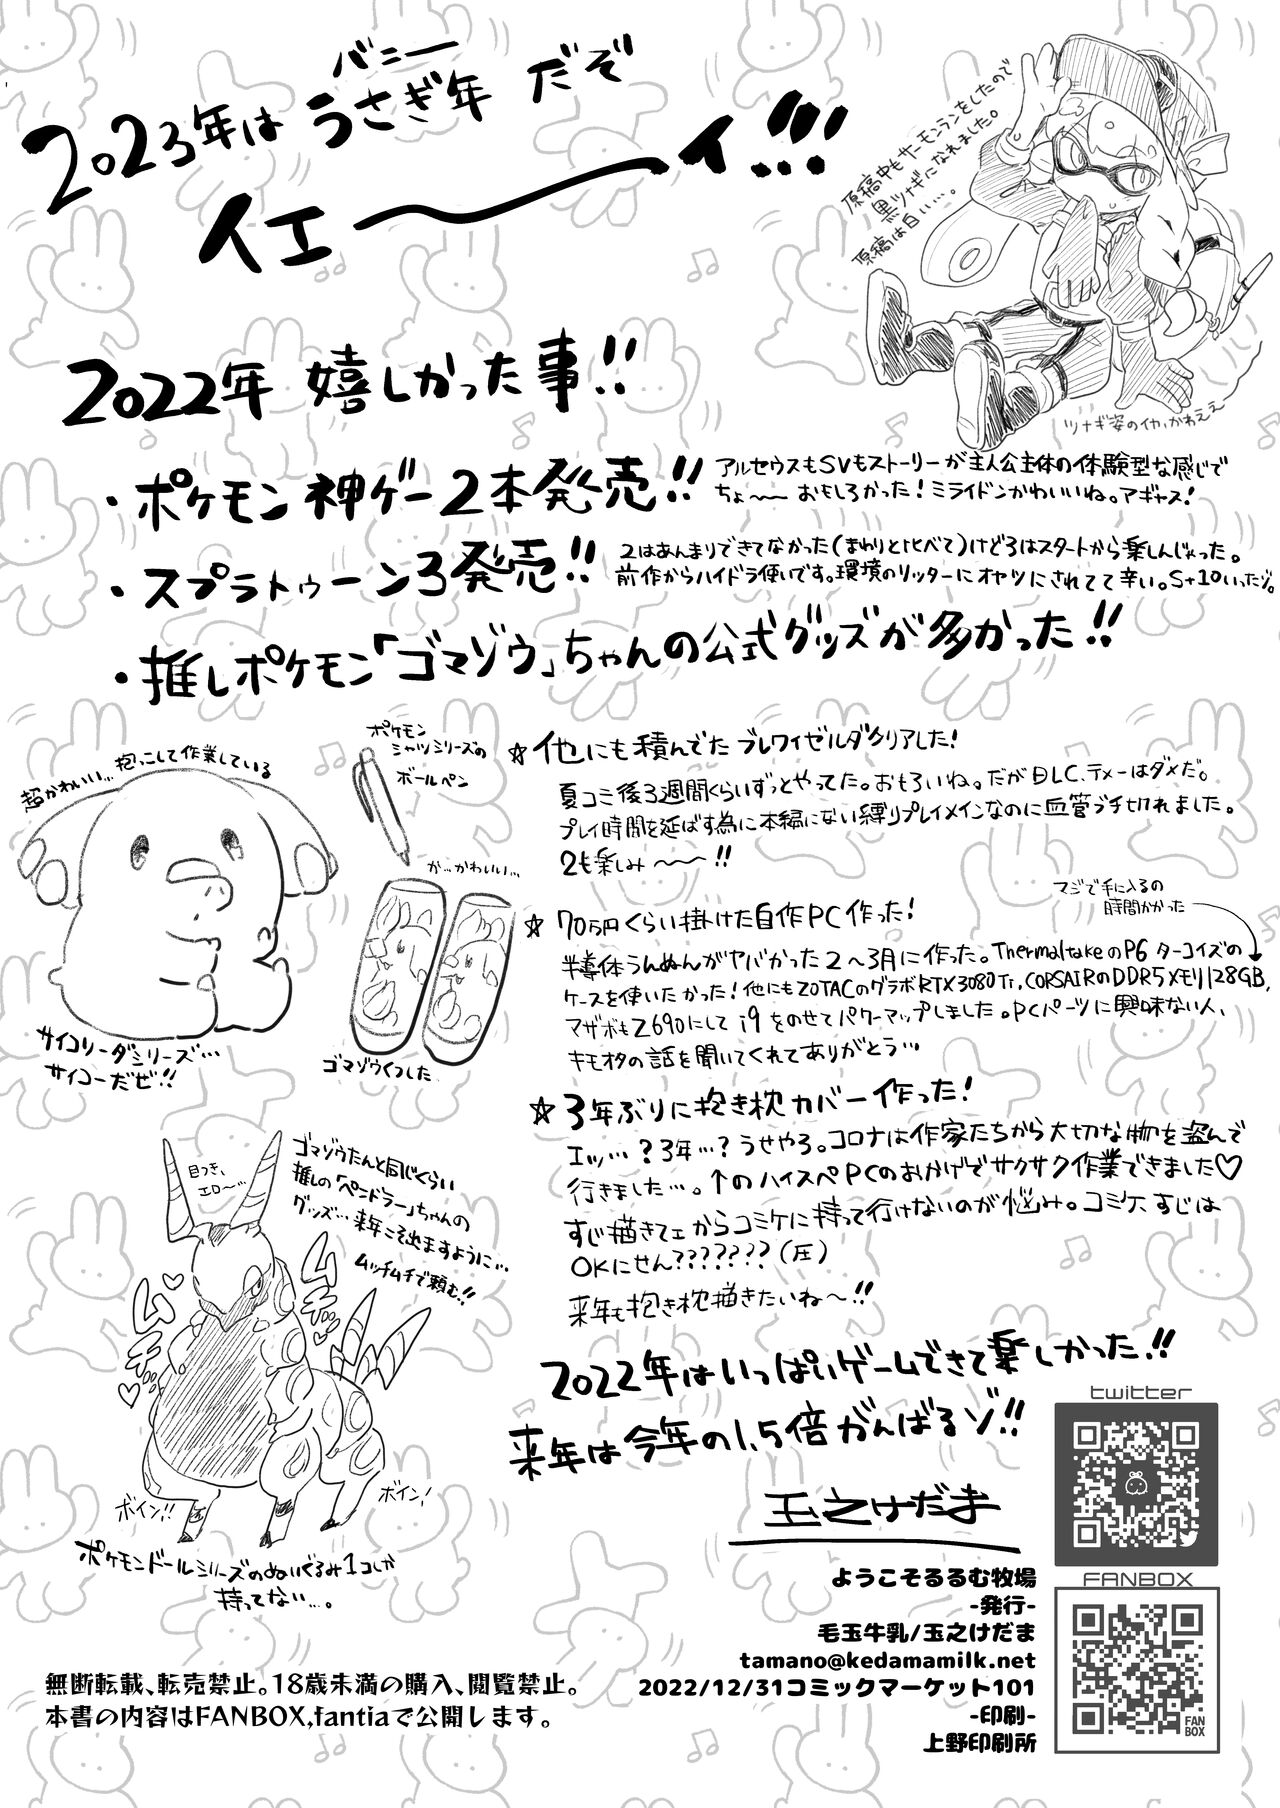 バニー
2023年は うさぎ年 だぞ
イエ〜〜ーイ!!!
原稿中もサーモンランをしたので
黒ツナギになれました。
原稿は白い…。
ツナギ姿のイカ、かわええ
2022年 嬉しかった事!!
・ポケモン神ゲー2本発売!!
アルセウスもSVもストーリーが主人公主体の体験型な感じで
ちょ〜〜 おもしろかった!ミライドンかわいいね。アギャス!
・スプラトゥーン3発売!!
2はあんまりできてなかった(まわりと比べて)けど3はスタートから楽しんじゃった。
前作からハイドラ使いです。環境のリッターにオヤツにされてて辛い。S+10いったゾ。
・推しポケモン「ゴマゾウ」ちゃんの公式グッズが多かった!!
超かわいい…抱っこして作業している
サイコソーダシリーズ…
サイコーだぜ!!
ポケモン
シャツシリーズの
ボールペン
か…かわいい…
ゴマゾウくつした
☆他にも積んでた ブレワイゼルダクリアした!
夏コミ後3週間くらいずっとやってた。おもろいね。だがDLC、テメーはダメだ。
プレイ時間を延ばす為に本編にない縛りプレイメインなのに血管ブチ切れました。
2も楽しみ〜〜!!
☆70万円くらい掛けた自作PC作った!
マジで手に入るの
時間かかった
半導体うんぬんがヤバかった2〜3月に作った。ThermaltakeのP6 ターコイズの
ケースを使いたかった!他にもZOTACのグラボRTX3080Ti,CORSAIRのDDR5メモリ128GB,
マザボもZ690にして i9をのせてパワーマップしました。PCパーツに興味ない人、
キモオタの話を聞いてくれてありがとう…
☆3年ぶりに抱き枕カバー作った!
エッ…?3年…?うせやろ。コロナは作家たちから大切な物を盗んで
行きました…。↑のハイスペPCのおかげでサクサク作業できました♡
すじ描きてェからコミケに持って行けないのが悩み。コミケ、すじは
OKにせん???????(圧)
来年も抱き枕描きたいね〜!!
目つき、
エロ〜…
ゴマゾウたんと同じくらい
推しの「ペンドラー」ちゃんの
グッズ…来年こそ出ますように…
ムッチムチで頼む!!
ムチ…♡
ムチッ…♡
ボイン!!
ボイン!
ポケモンドールシリーズのぬいぐるみ1コしか
持ってない…。
2022年はいっぱいゲームできて楽しかった!!
来年は今年の1.5倍がんばるゾ!!
玉之けだま
twitter
FANBOX
FAN
BOX
ようこそるるむ牧場
-発行-
毛玉牛乳/玉之けだま
tamano@kedamamilk.net
2022/12/31コミックマーケット101
-印刷-
上野印刷所
無断転載、転売禁止。18歳未満の購入、閲覧禁止。
本書の内容はFANBOX,fantiaで公開します。